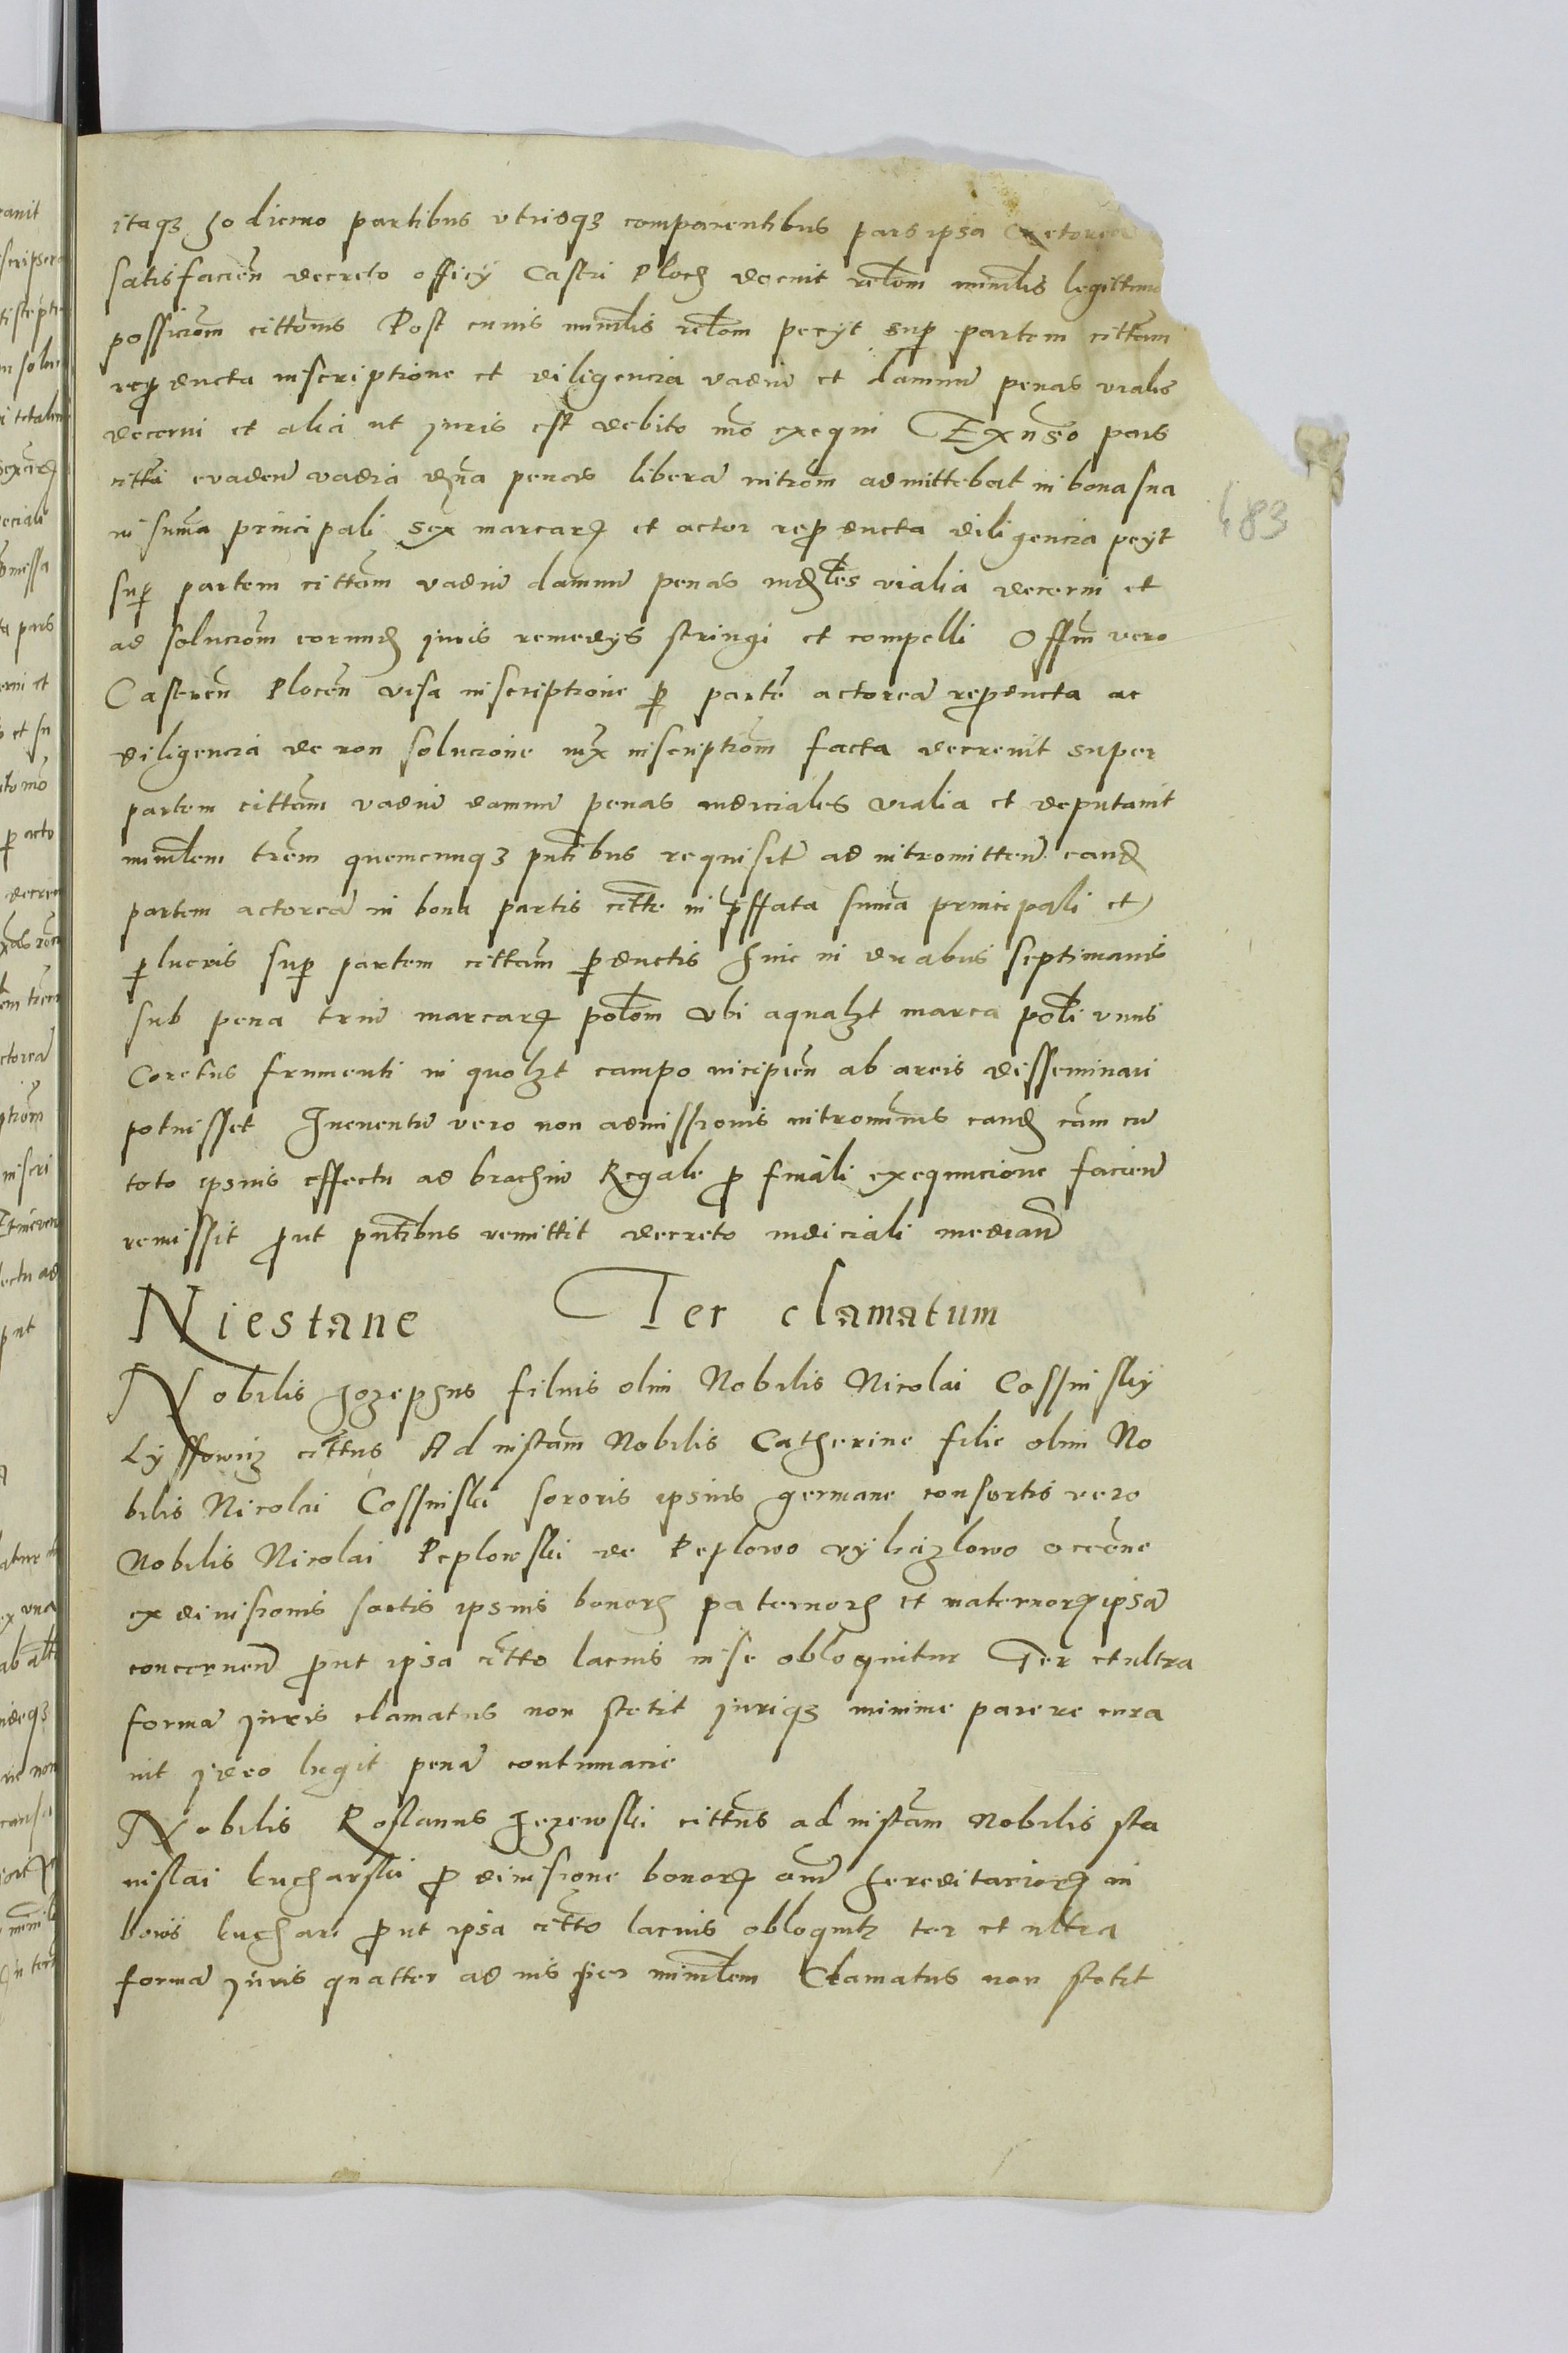 itaqz hodierno partibus vtrisqz comparentibus pars ipsa actorea
satisfacien decreto officy Castri Ploch docuit relom ministlis legittima
possiciom cittonis Post cuius ministlis relom pecyt sup partem cittam
reproducta inscriptione et diligencia vadiu et damnu penas vialia
decerni et alia ut juris est debito mo exequi Ex adverso pars
citta evaden vadia dna penas libera introm admittebat in bona sua
in suma principali sex marcarz et actor reproducta diligencia peyt
sup partem cittam vadiu damnu penas iudles vialia decerni et
ad soluciom eorund juris remedys stringi et compelli Offm vero
Castren Plocen visa inscriptione p parte actorea reproducta ac
diligencia de non solucione iux inscriptiom facta decrevit super
partem cittam vadiu damnu penas iudiciales vialia et deputavit
ministlem trem quemcunqz pntibus requisitu ad intromitten eand
partem actorea in bona partis citte in prffata suma principali et
p lucris sup partem cittam pductis hinc in duabus septimanis
sub pena triu marcarz polom vbi aqualzt marca poli vnus
Coretus frumenti in quolzt campo incipien ab areis disseminari
potuisset Ineventu vero non admissionis intromionis eand cam cu
toto ipsius effectu ad brachiu Regale pro finali exequucione facien
remissit prout pntibus remittit decreto iudiciali median
Niestane Ter clamatum
Nobilis Jozephus filius olim Nobilis Nicolai Cossinsky
Lyssowiz cittus Ad instam Nobilis Catherine filie olim No
bilis Nicolai Cossinski sororis ipsius germane consortis vero
Nobilis Nicolai Peplowski de Peplowo occone
ex divisionis sortis ipsius bonorz paternorz et maternorz ipsa
concernen prout ipsa citto lacius in se obloquitur Ter et ultra
forma juris clamatus non stetit juriqz minime parere cura
vit jdeo luget pena contumacie
Nobilis Roslanus Jezewski cittus ad instam Nobilis sta
nislai kucharski pro divisione bonorz oniu hereditariorz in
bonis kuchari prout ipsa citto lacius obloquitz ter et ultra
forma juris quatter ad ius per ministlem Clamatus non stetit
483